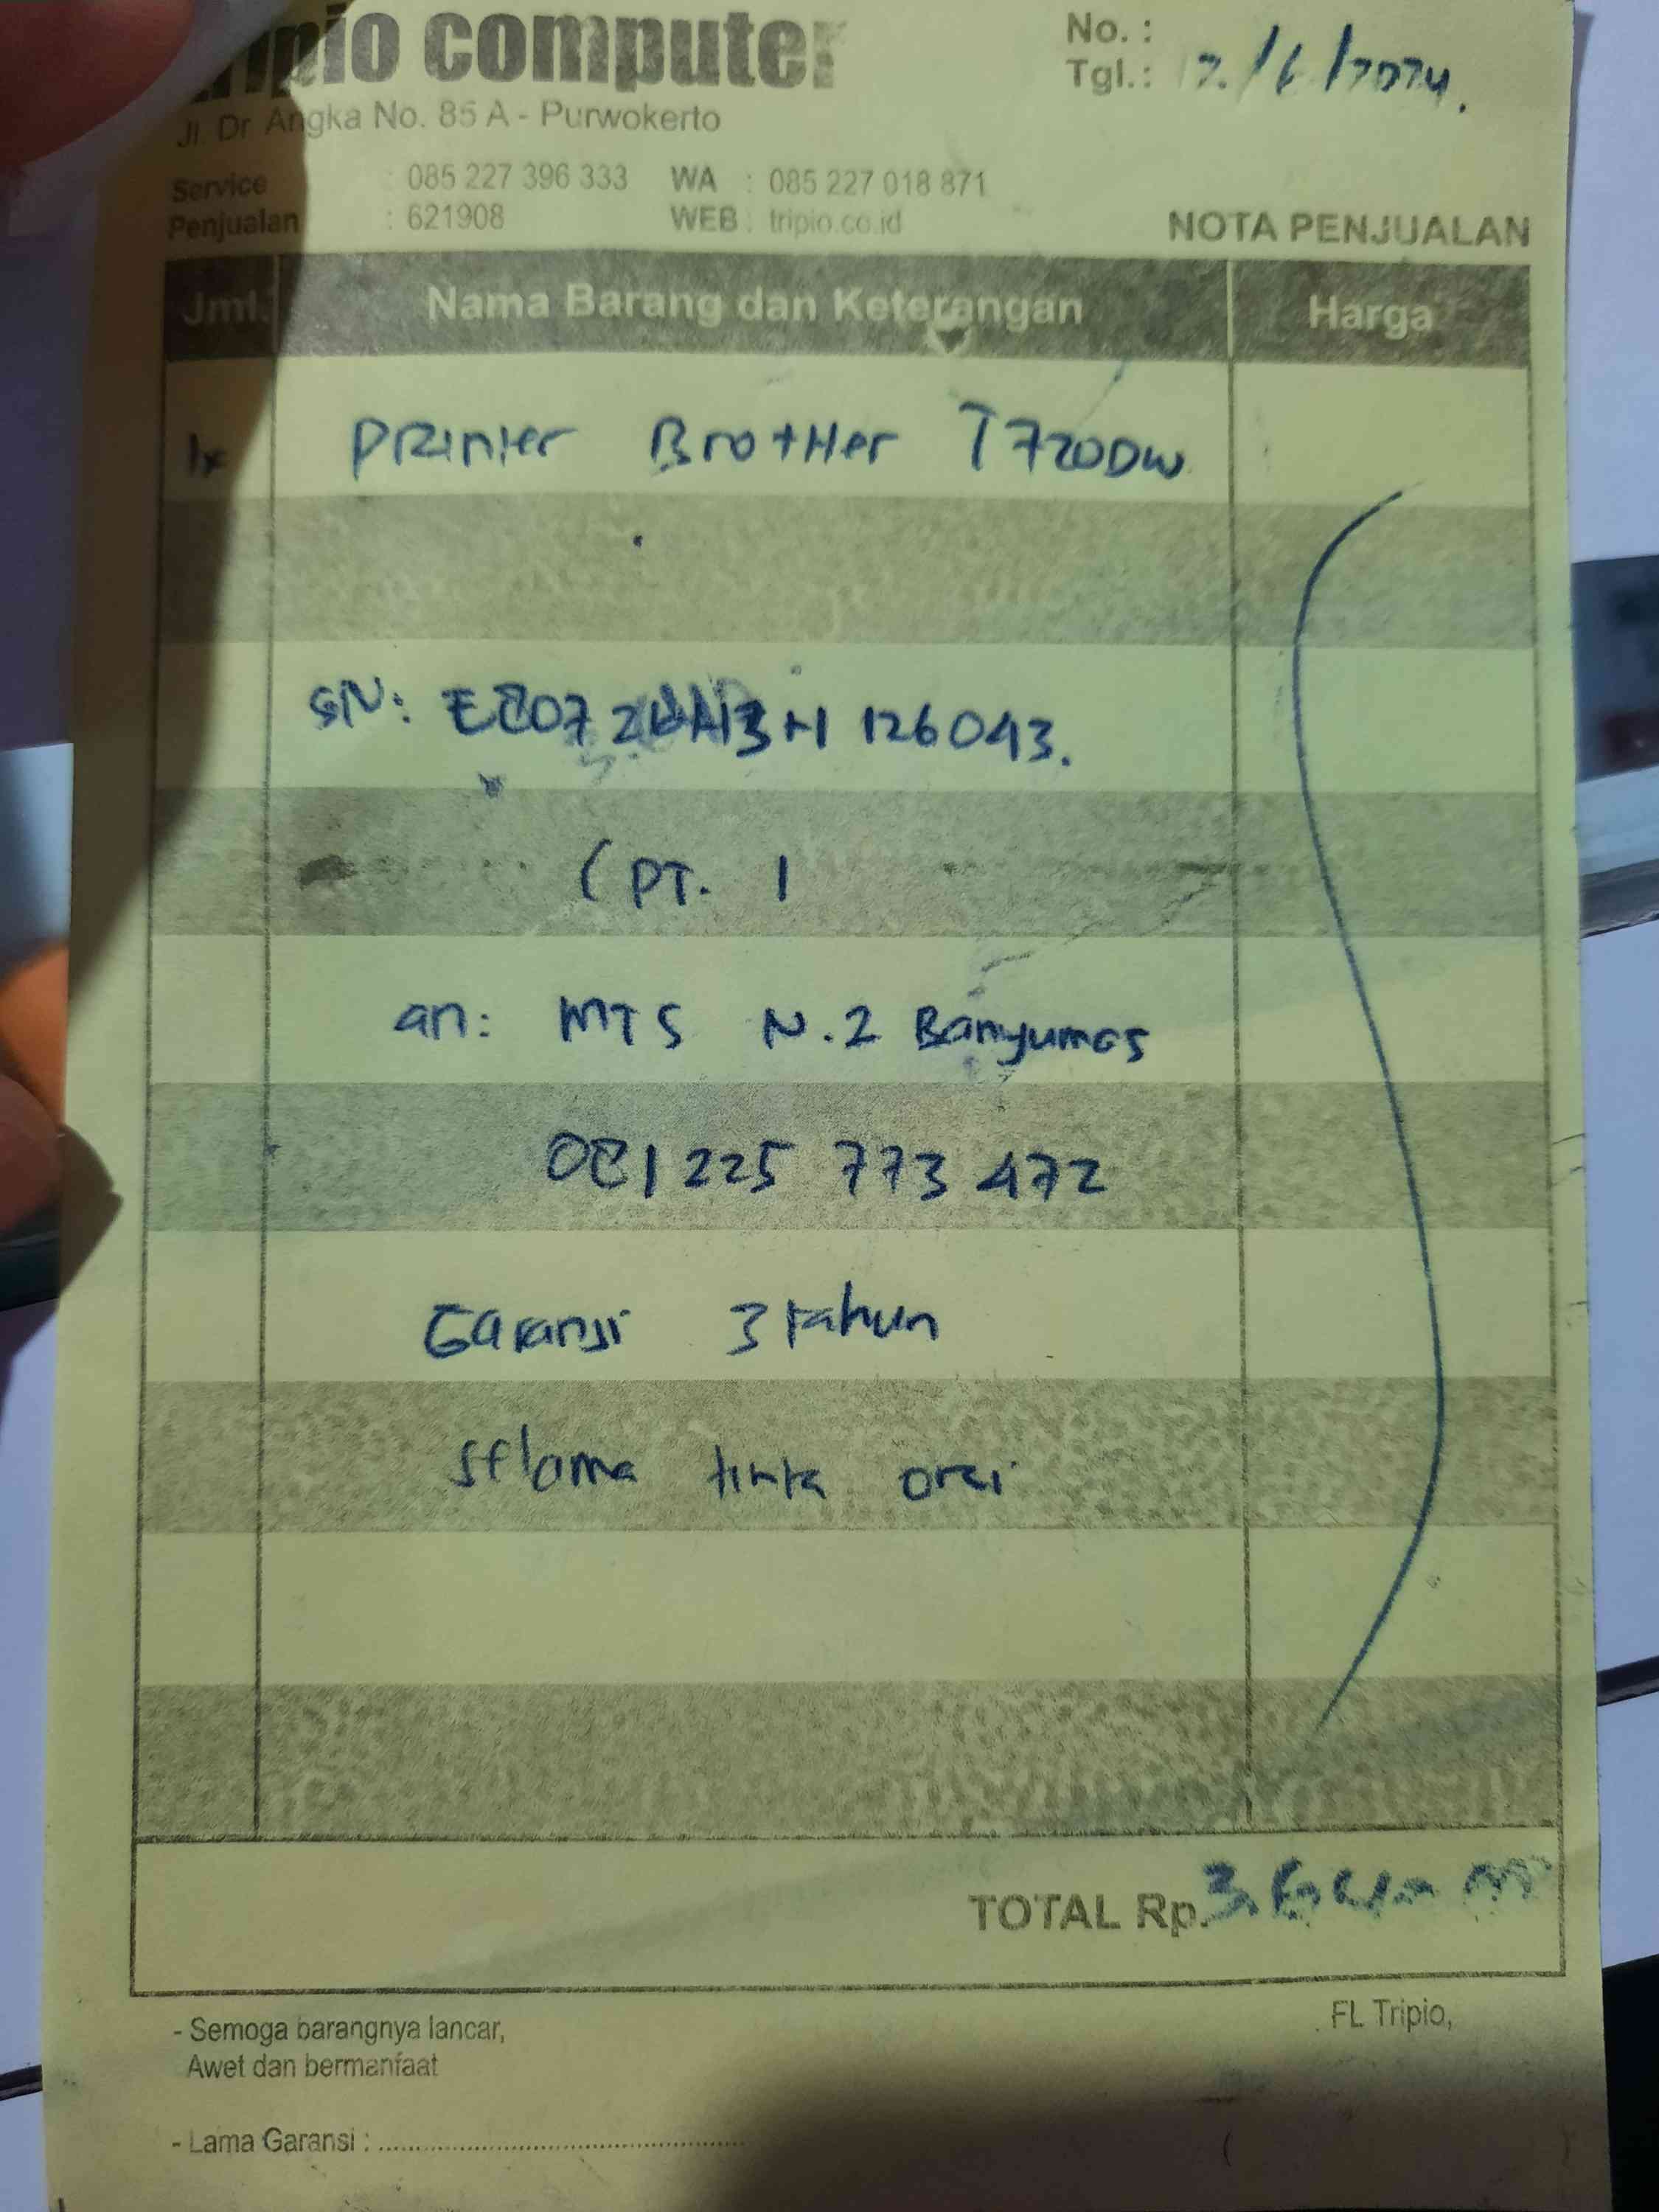 tripio computer
No. :
Tgl.: 12/6/2024.
Jl. Dr Angka No. 85 A - Purwokerto
Service : 085 227 396 333 WA : 085 227 018 871
Penjualan : 621908 WEB : tripio.co.id
NOTA PENJUALAN
Jml. Nama Barang dan Keterangan Harga
1x Printer Brother T720DW
SN: 126043.
(PT. 1
an: MTS N.2 Banyumas
081225 773 472
Garansi 3 tahun
selama tinta ori
TOTAL Rp.
- Semoga barangnya lancar,
Awet dan bermanfaat
FL Tripio,
- Lama Garansi : ........................................
( )